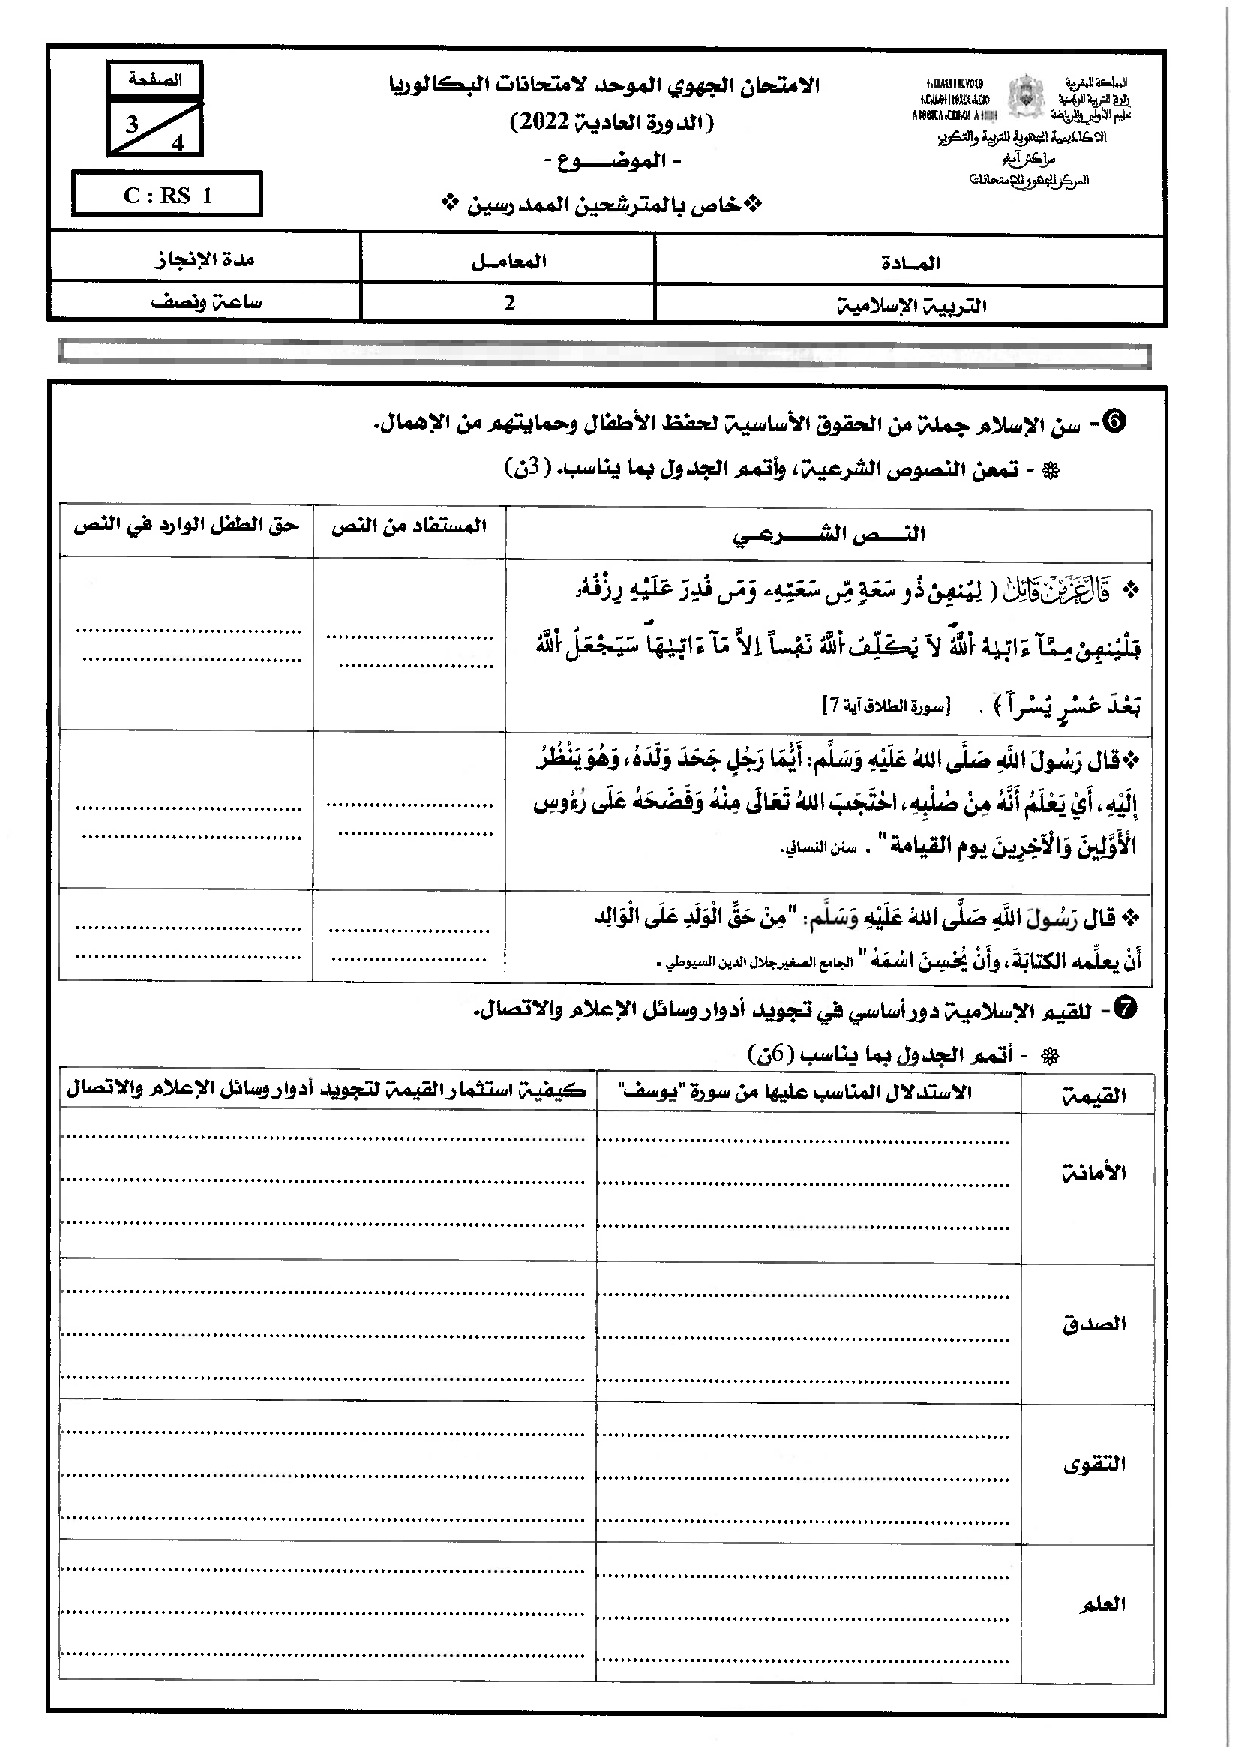 الصفحة
3
4
C : RS 1
الامتحان الجهوي الموحد لامتحانات البكالوريا
(الدورة العادية 2022)
- الموضـــوع -
❖خاص بالمترشحين الممدرسين ❖
المملكة المغربية
وزارة التربية الوطنية
والرياضة
الأكاديمية الجهوية للتربية والتكوين
المركز الجهوي للامتحانات
المــادة
المعامـل
مدة الإنجاز
التربية الإسلامية
2
ساعة ونصف
❻- سن الإسلام جملة من الحقوق الأساسية لحفظ الأطفال وحمايتهم من الاهمال.
❁ - تمعن النصوص الشرعية، وأتمم الجدول بما يناسب. (3ن)
النــص الشــــرعــي
المستفاد من النص
حق الطفل الوارد في النص
❖ قَالَ عَزَّ مِنْ قَائِل ( لِيُنفِقْ ذُو سَعَةٍ مِّن سَعَتِهِۦ وَمَن قُدِرَ عَلَيْهِ رِزْقُهُۥ
فَلْيُنفِقْ مِمَّآ ءَاتَىٰهُ اُ۬للَّهُ لَا يُكَلِّفُ اُ۬للَّهُ نَفْساً اِلَّا مَآ ءَاتَىٰهَا سَيَجْعَلُ اُ۬للَّهُ
بَعْدَ عُسْرٍ يُسْراً ) . [سورة الطلاق آية 7]
❖قال رَسُولَ اللَّهِ صَلَّى اللهُ عَلَيْهِ وَسَلَّم: أَيُّمَا رَجُلٍ جَحَدَ وَلَدَهُ، وَهُوَ يَنْظُرُ
إِلَيْهِ، أَيْ يَعْلَمُ أَنَّهُ مِنْ صُلْبِهِ، احْتَجَبَ اللهُ تَعَالَى مِنْهُ وَفَضَحَهُ عَلَى رُءُوسِ
الْأَوَّلِينَ وَالْآخِرِينَ يوم القيامة" . سنن النسائي.
❖ قال رَسُولَ اللَّهِ صَلَّى اللهُ عَلَيْهِ وَسَلَّم: "مِنْ حَقِّ الْوَلَدِ عَلَى الْوَالِدِ
أَنْ يعلِّمه الكتابَةَ، وأَنْ يُحْسِنَ اسْمَهُ " الجامع الصغير جلال الدين السيوطي .
❼- للقيم الإسلامية دور أساسي في تجويد أدوار وسائل الإعلام والاتصال.
❁ - أتمم الجدول بما يناسب (6ن)
القيمة
الاستدلال المناسب عليها من سورة "يوسف"
كيفية استثمار القيمة لتجويد أدوار وسائل الإعلام والاتصال
الأمانة
الصدق
التقوى
العلم